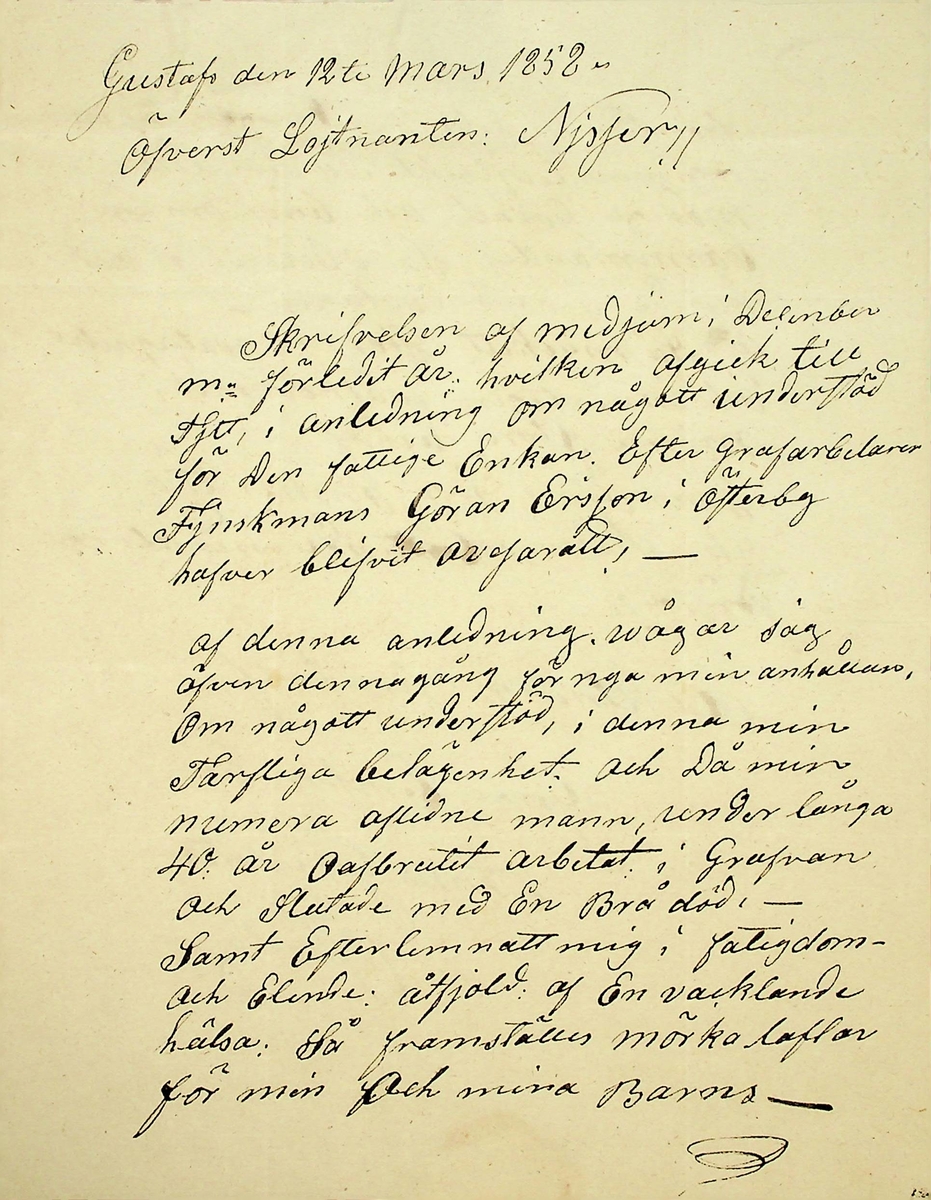 Gustafs den 12te Mars 1858 „
Öfverst Löjtnanten: Nisser //
Skrifvelsen af medjum i Decenber
m: förledit år: hvilken afgick till
i anledning om någott understöd
för Den fattige Enkan. Efter grufarbetaren
Göran Ersson i Österby
hafver blifvit
af denna anledning. wågar jag
äfven dennagång förnga min anhållan,
Om någott understöd, i denna min
Tarfliga belägenhet. och Då min
numera aflidne mann, under långa
40: år Oafbrutit arbetat i Grufvan
och Slutade med En Brå död, —
Samt Efterlemnatt mig i fatigdom-
och Elende: åtfjold: af En vacklande
hälsa: Så framställes mörka taflor
för min Och mina Barns —